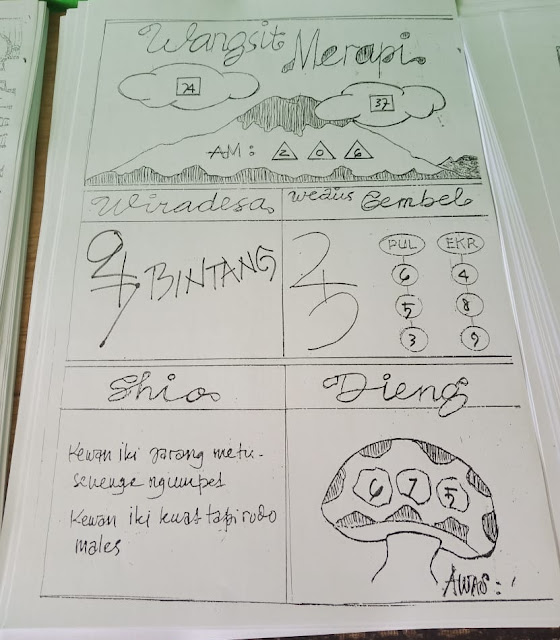 Wangsit Merapi
74
37
AM: 2 0 6
Wiradesa
wedus Gembel
BINTANG
PUL EKR
6 4
5 8
3 9
Shio
Dieng
Kewan iki jarang metu.
senenge ngumpet
Kewan iki kuat tapi rodo
males
6 7 5
AWAS: